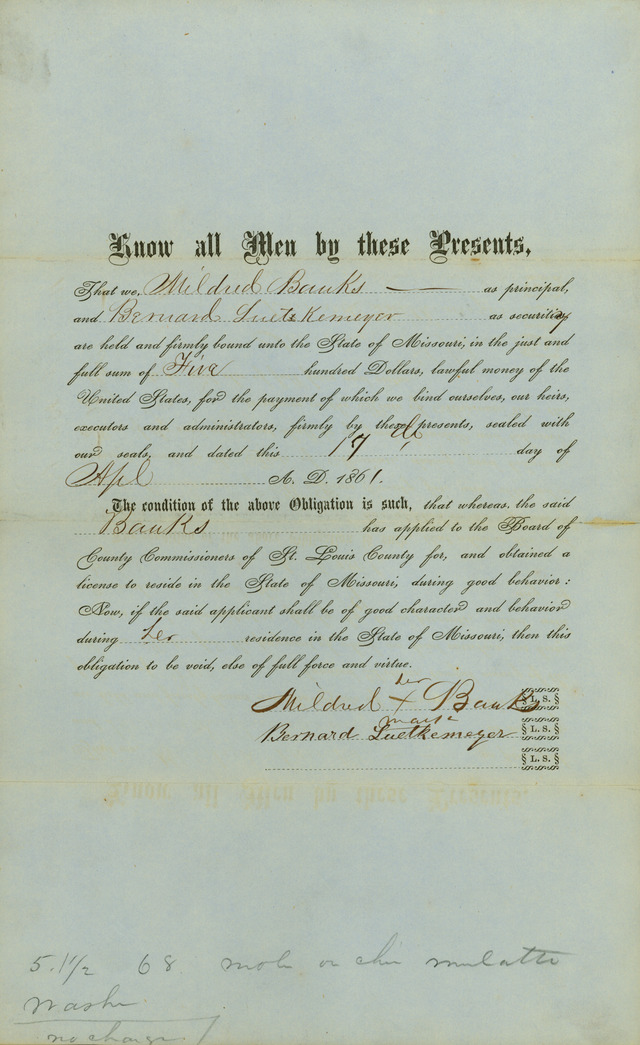 Know all Men by these Presents,
That we, Mildred Banks — as principal,
and Bernard Luetkemeyer as security
are held and firmly bound unto the State of Missouri, in the just and
full sum of Five hundred Dollars, lawful money of the
United States, for the payment of which we bind ourselves, our heirs,
executors and administrators, firmly by these presents, sealed with
our seals, and dated this 17th day of
Apl A. D. 1861.
The condition of the above Obligation is such, that whereas, the said
Banks has applied to the Board of
County Commissioners of St. Louis County for, and obtained a
license to reside in the State of Missouri, during good behavior:
Now, if the said applicant shall be of good character and behavior
during her residence in the State of Missouri, then this
obligation to be void, else of full force and virtue.
her
Mildred X Banks L. S.
mark
Bernard Luetkemeyer L. S.
L. S.
5.1 1/2 68 mole on chin mulatto
Washer
no charge